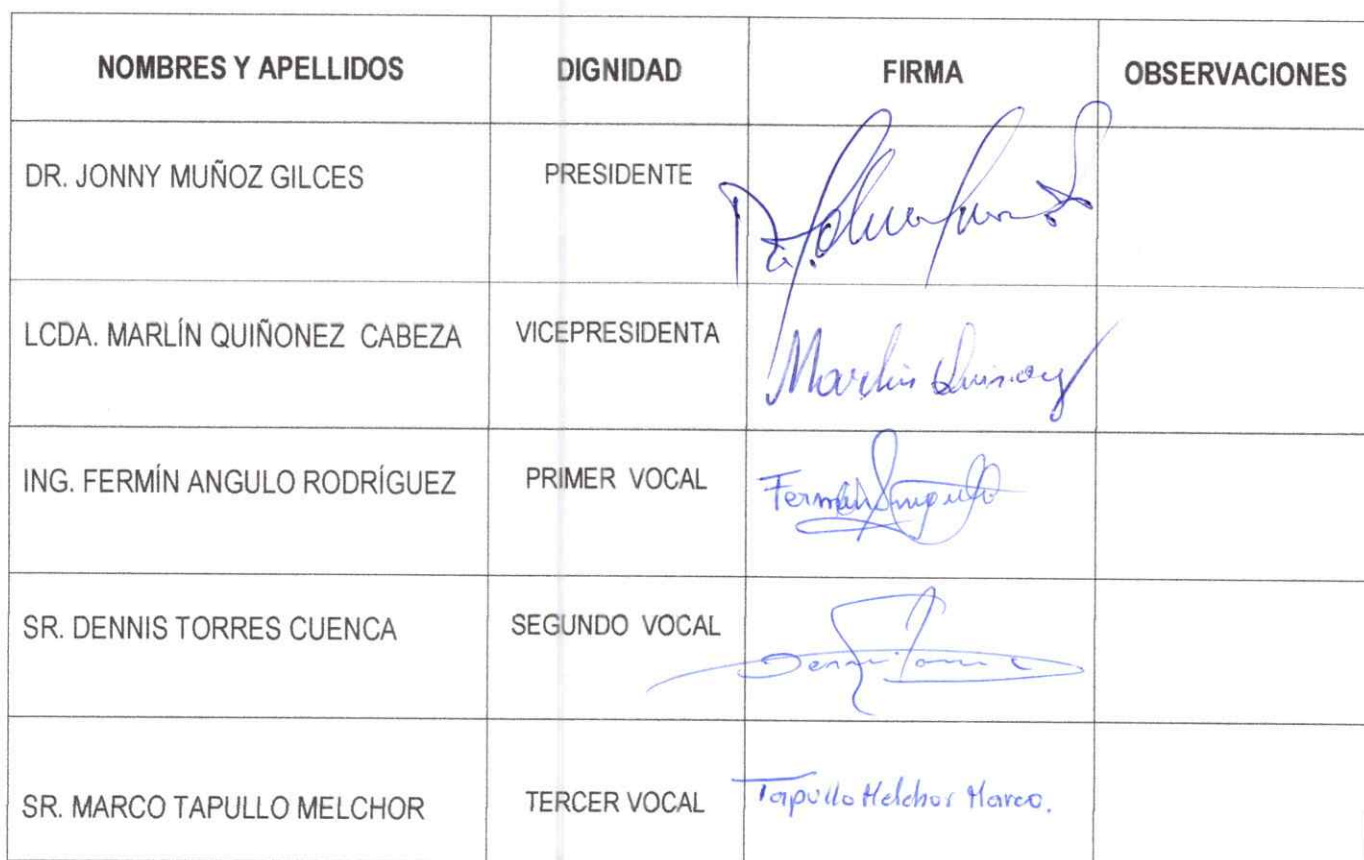 NOMBRES Y APELLIDOS DIGNIDAD FIRMA OBSERVACIONES
DR. JONNY MUÑOZ GILCES PRESIDENTE
LCDA. MARLÍN QUIÑONEZ CABEZA VICEPRESIDENTA Marlin
ING. FERMÍN ANGULO RODRÍGUEZ PRIMER VOCAL Fermin Angulo
SR. DENNIS TORRES CUENCA SEGUNDO VOCAL
SR. MARCO TAPULLO MELCHOR TERCER VOCAL Tapullo Melchor Marco.